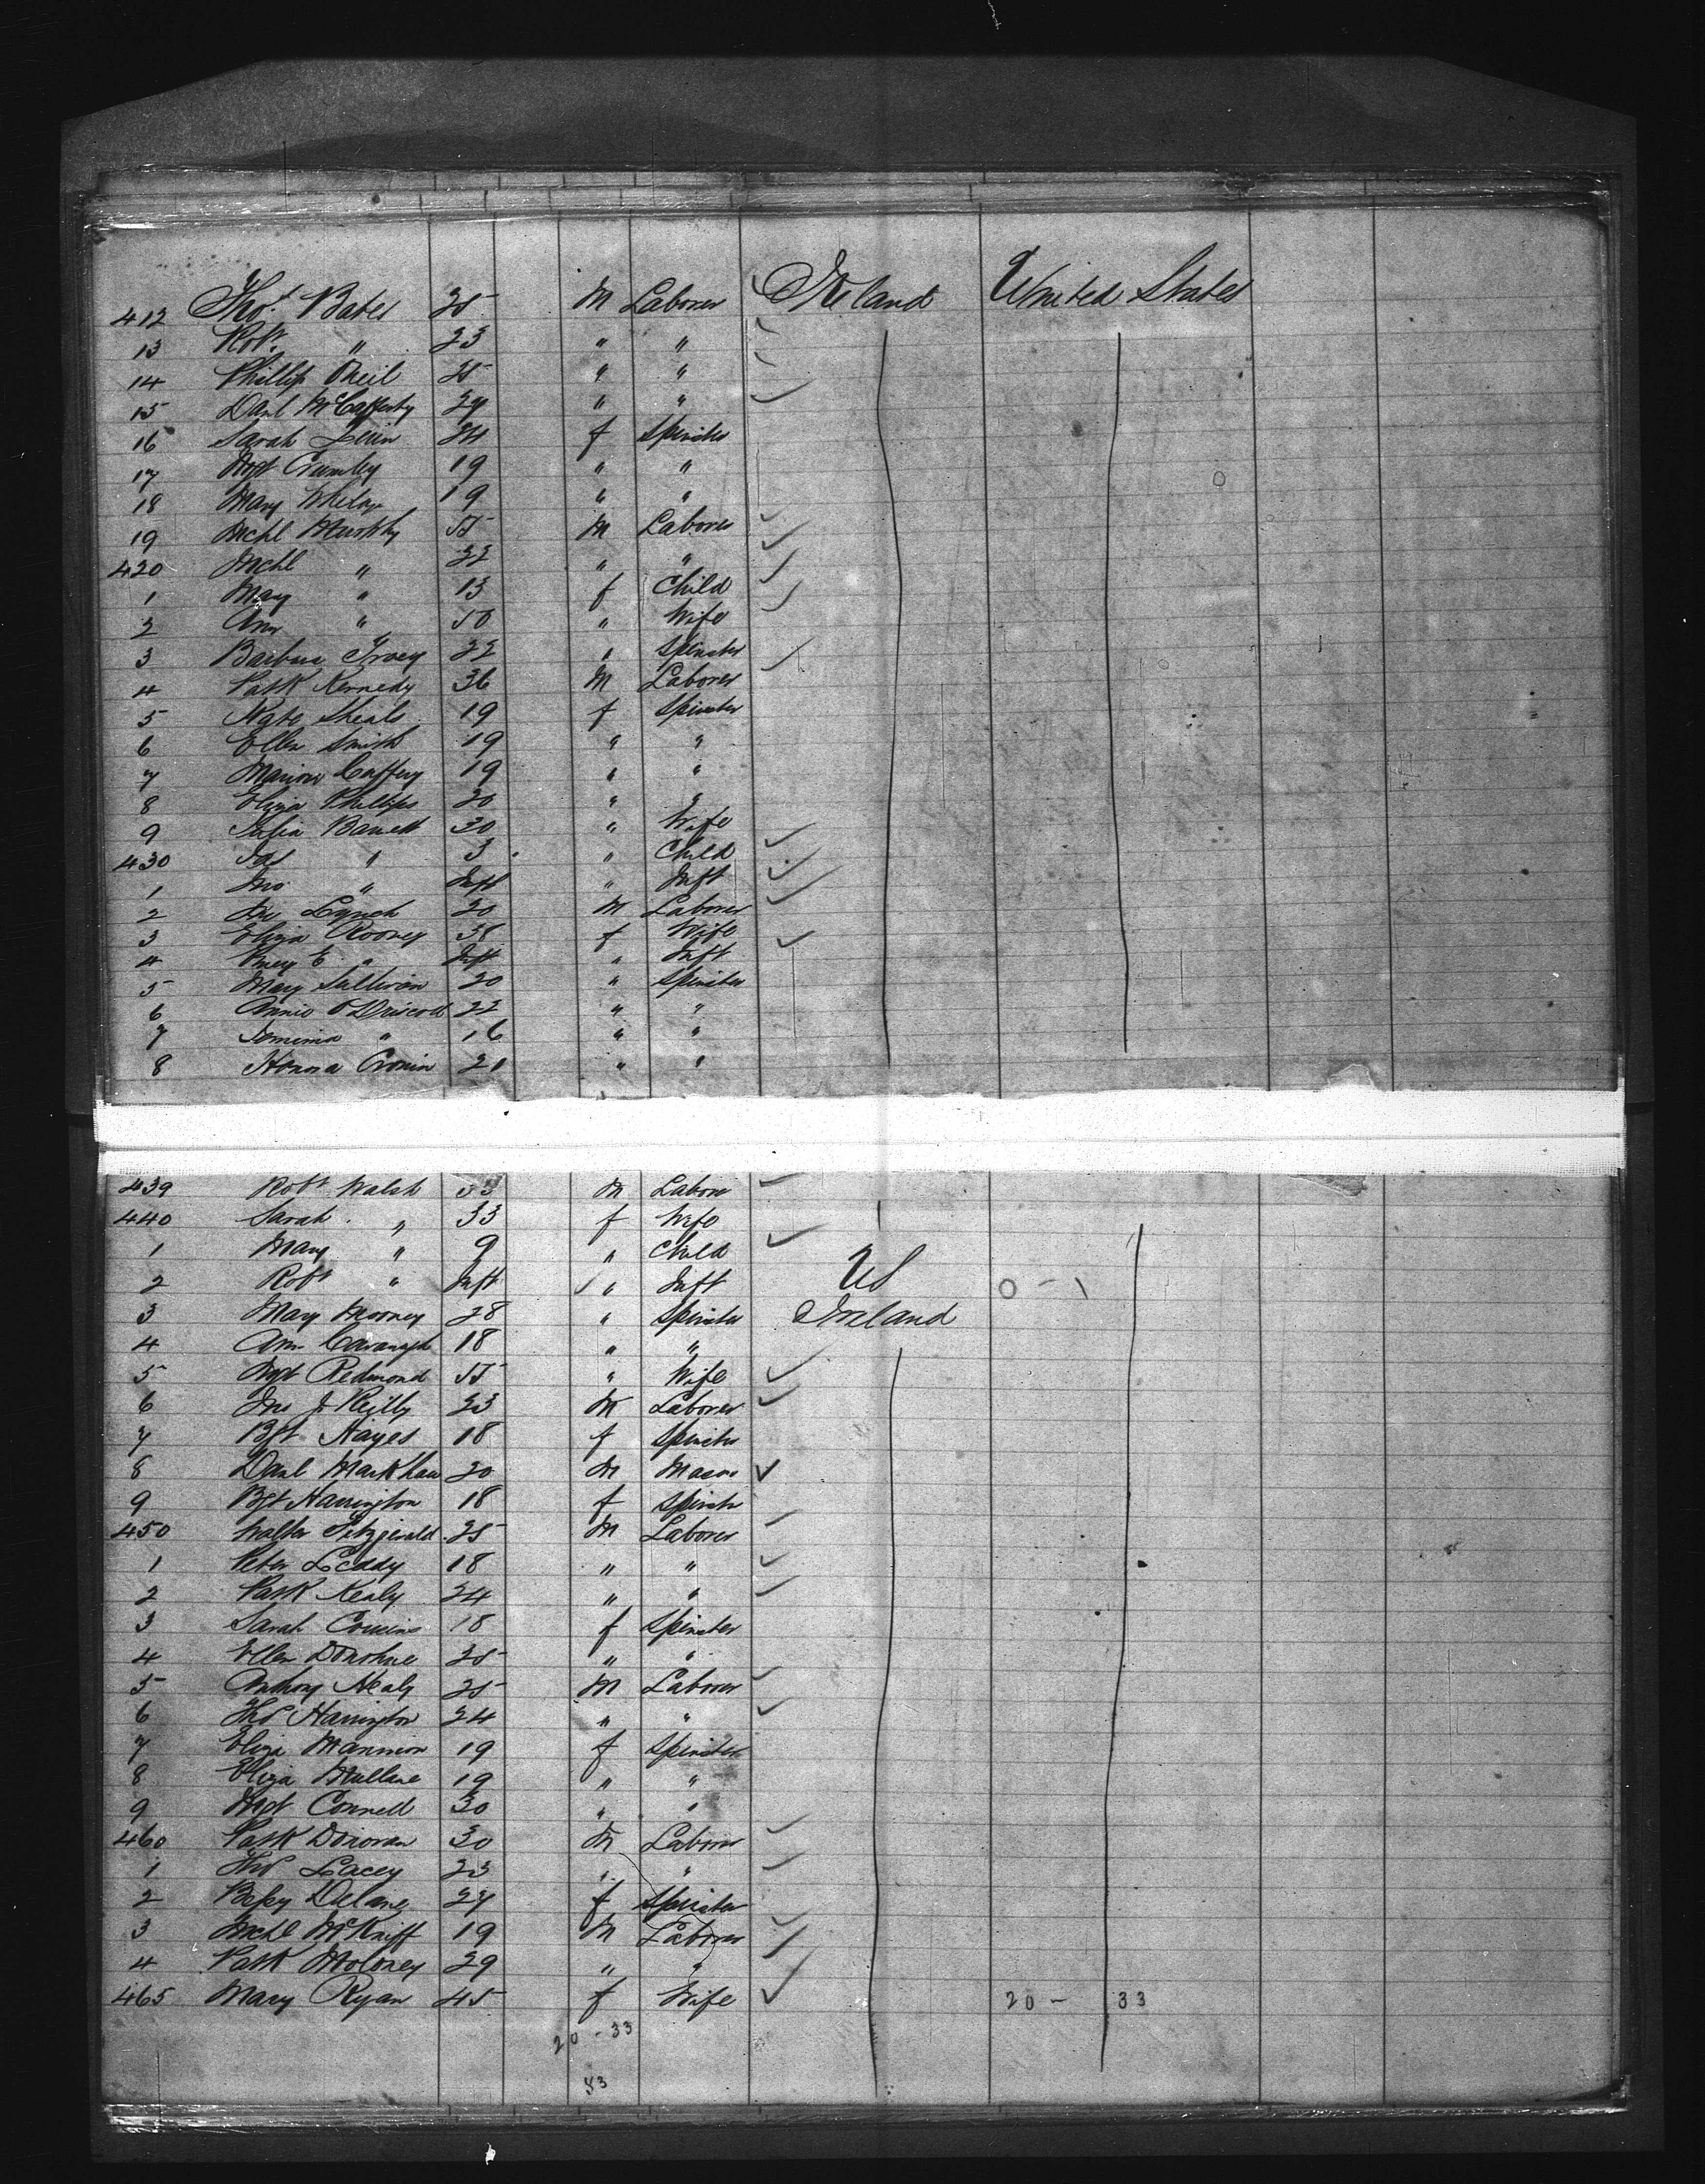 412 Thos. Bates 25 M Laborer Ireland United States
13 Robt. " 23 " "
14 Phillip Oneil 25 " "
15 Danl McCafferty 24 " "
16 Sarah 24 f Spinster
17 Mgt Crumley 19 " "
18 Mary Whelan 19 " "
19 Mchl Murphy 55 M Laborer
420 Mchl " 22 " "
1 Mary " 13 f Child
2 Ann " 50 " Wife
3 Barbara 22 " Spinster
4 Patk Kennedy 36 M Laborer
5 Kate Sheals 19 f Spinster
6 Ellen Smith 19 " "
7 Caffery 19 " "
8 Eliza Phillips 20 " "
9 Julia Barrett 30 " Wife
430 Jas " 3 " Child
1 Jno " Inft " Inft
2 Jno Lynch 20 M Laborer
3 Eliza Rooney 38 f Wife
4 Mary E " Inft " Inft
5 Mary Sullivan 20 " Spinster
6 Annie O'Driscoll 22 " "
7 Jemima " 16 " "
8 Honora Cronin 20 " "
439 Robt Walsh 33 M Labore
440 Sarah " 33 f Wife
1 Mary " 9 " Child
2 Robt " Inft " Inft US 0 - 1
3 Mary Mooney 28 " Spinster Ireland
4 Ann Cavanagh 18 " "
5 Mgt Redmond 55 " Wife
6 Jno J. Reilly 23 M Laborer
7 Bgt Hayes 18 f Spinster
8 Danl Markham 20 M Mason
9 Bgt Harrington 18 f Spinster
450 Walter Fitzgerald 25 M Laborer
1 Peter Leddy 18 " "
2 Patk Kealy 24 " "
3 Sarah Cousins 18 f Spinster
4 Ellen Donohue 25 " "
5 Anthony Nealy 25 M Laborer
6 Thos Harrington 24 " "
7 Eliza Mannion 19 f Spinster
8 Eliza Mullane 19 " "
9 Mgt Connell 30 " "
460 Patk Donovan 30 M Laborer
1 Thos Lacey 23 " "
2 Bessy Delaney 27 f Spinster
3 Mchl McKniff 19 M Laborer
4 Patk Moloney 29 " "
465 Mary Ryan 45 f Wife 20 - 33
20 - 33